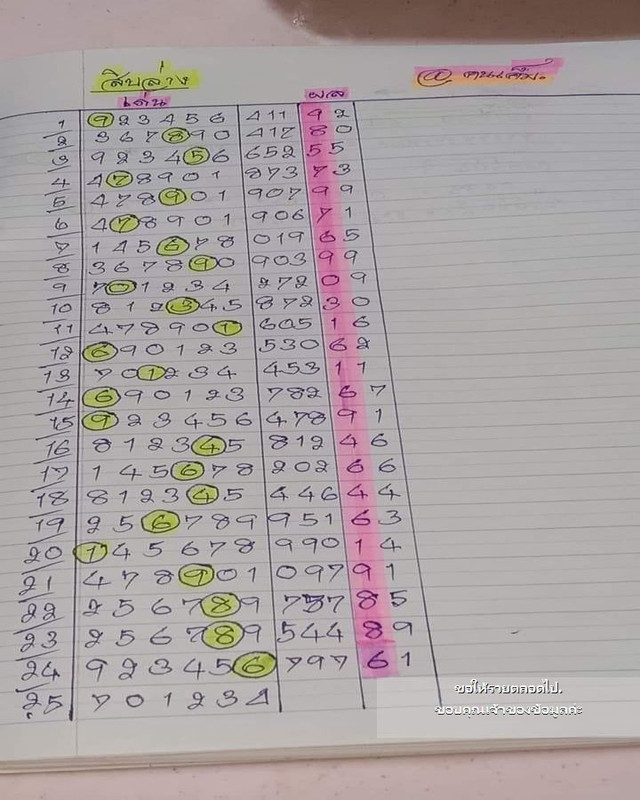 สิบล่าง
@ คนเดิม.
เด่น ผล
1 9 2 3 4 5 6 411 9 2
2 3 6 7 8 9 0 417 8 0
3 9 2 3 4 5 6 652 5 5
4 4 7 8 9 0 1 873 7 3
5 4 7 8 9 0 1 907 9 9
6 4 7 8 9 0 1 906 7 1
7 1 4 5 6 7 8 019 6 5
8 3 6 7 8 9 0 903 9 9
9 7 0 1 2 3 4 272 0 9
10 8 1 2 3 4 5 872 3 0
11 4 7 8 9 0 1 605 1 6
12 6 9 0 1 2 3 530 6 2
13 7 0 1 2 3 4 453 1 1
14 6 9 0 1 2 3 782 6 7
15 9 2 3 4 5 6 478 9 1
16 8 1 2 3 4 5 812 4 6
17 1 4 5 6 7 8 202 6 6
18 8 1 2 3 4 5 446 4 4
19 2 5 6 7 8 9 951 6 3
20 1 4 5 6 7 8 990 1 4
21 4 7 8 9 0 1 097 9 1
22 2 5 6 7 8 9 757 8 5
23 2 5 6 7 8 9 544 8 9
24 9 2 3 4 5 6 797 6 1
25 7 0 1 2 3 4
ขอให้รวยตลอดไป.
ขอบคุณเจ้าของข้อมูลค่ะ